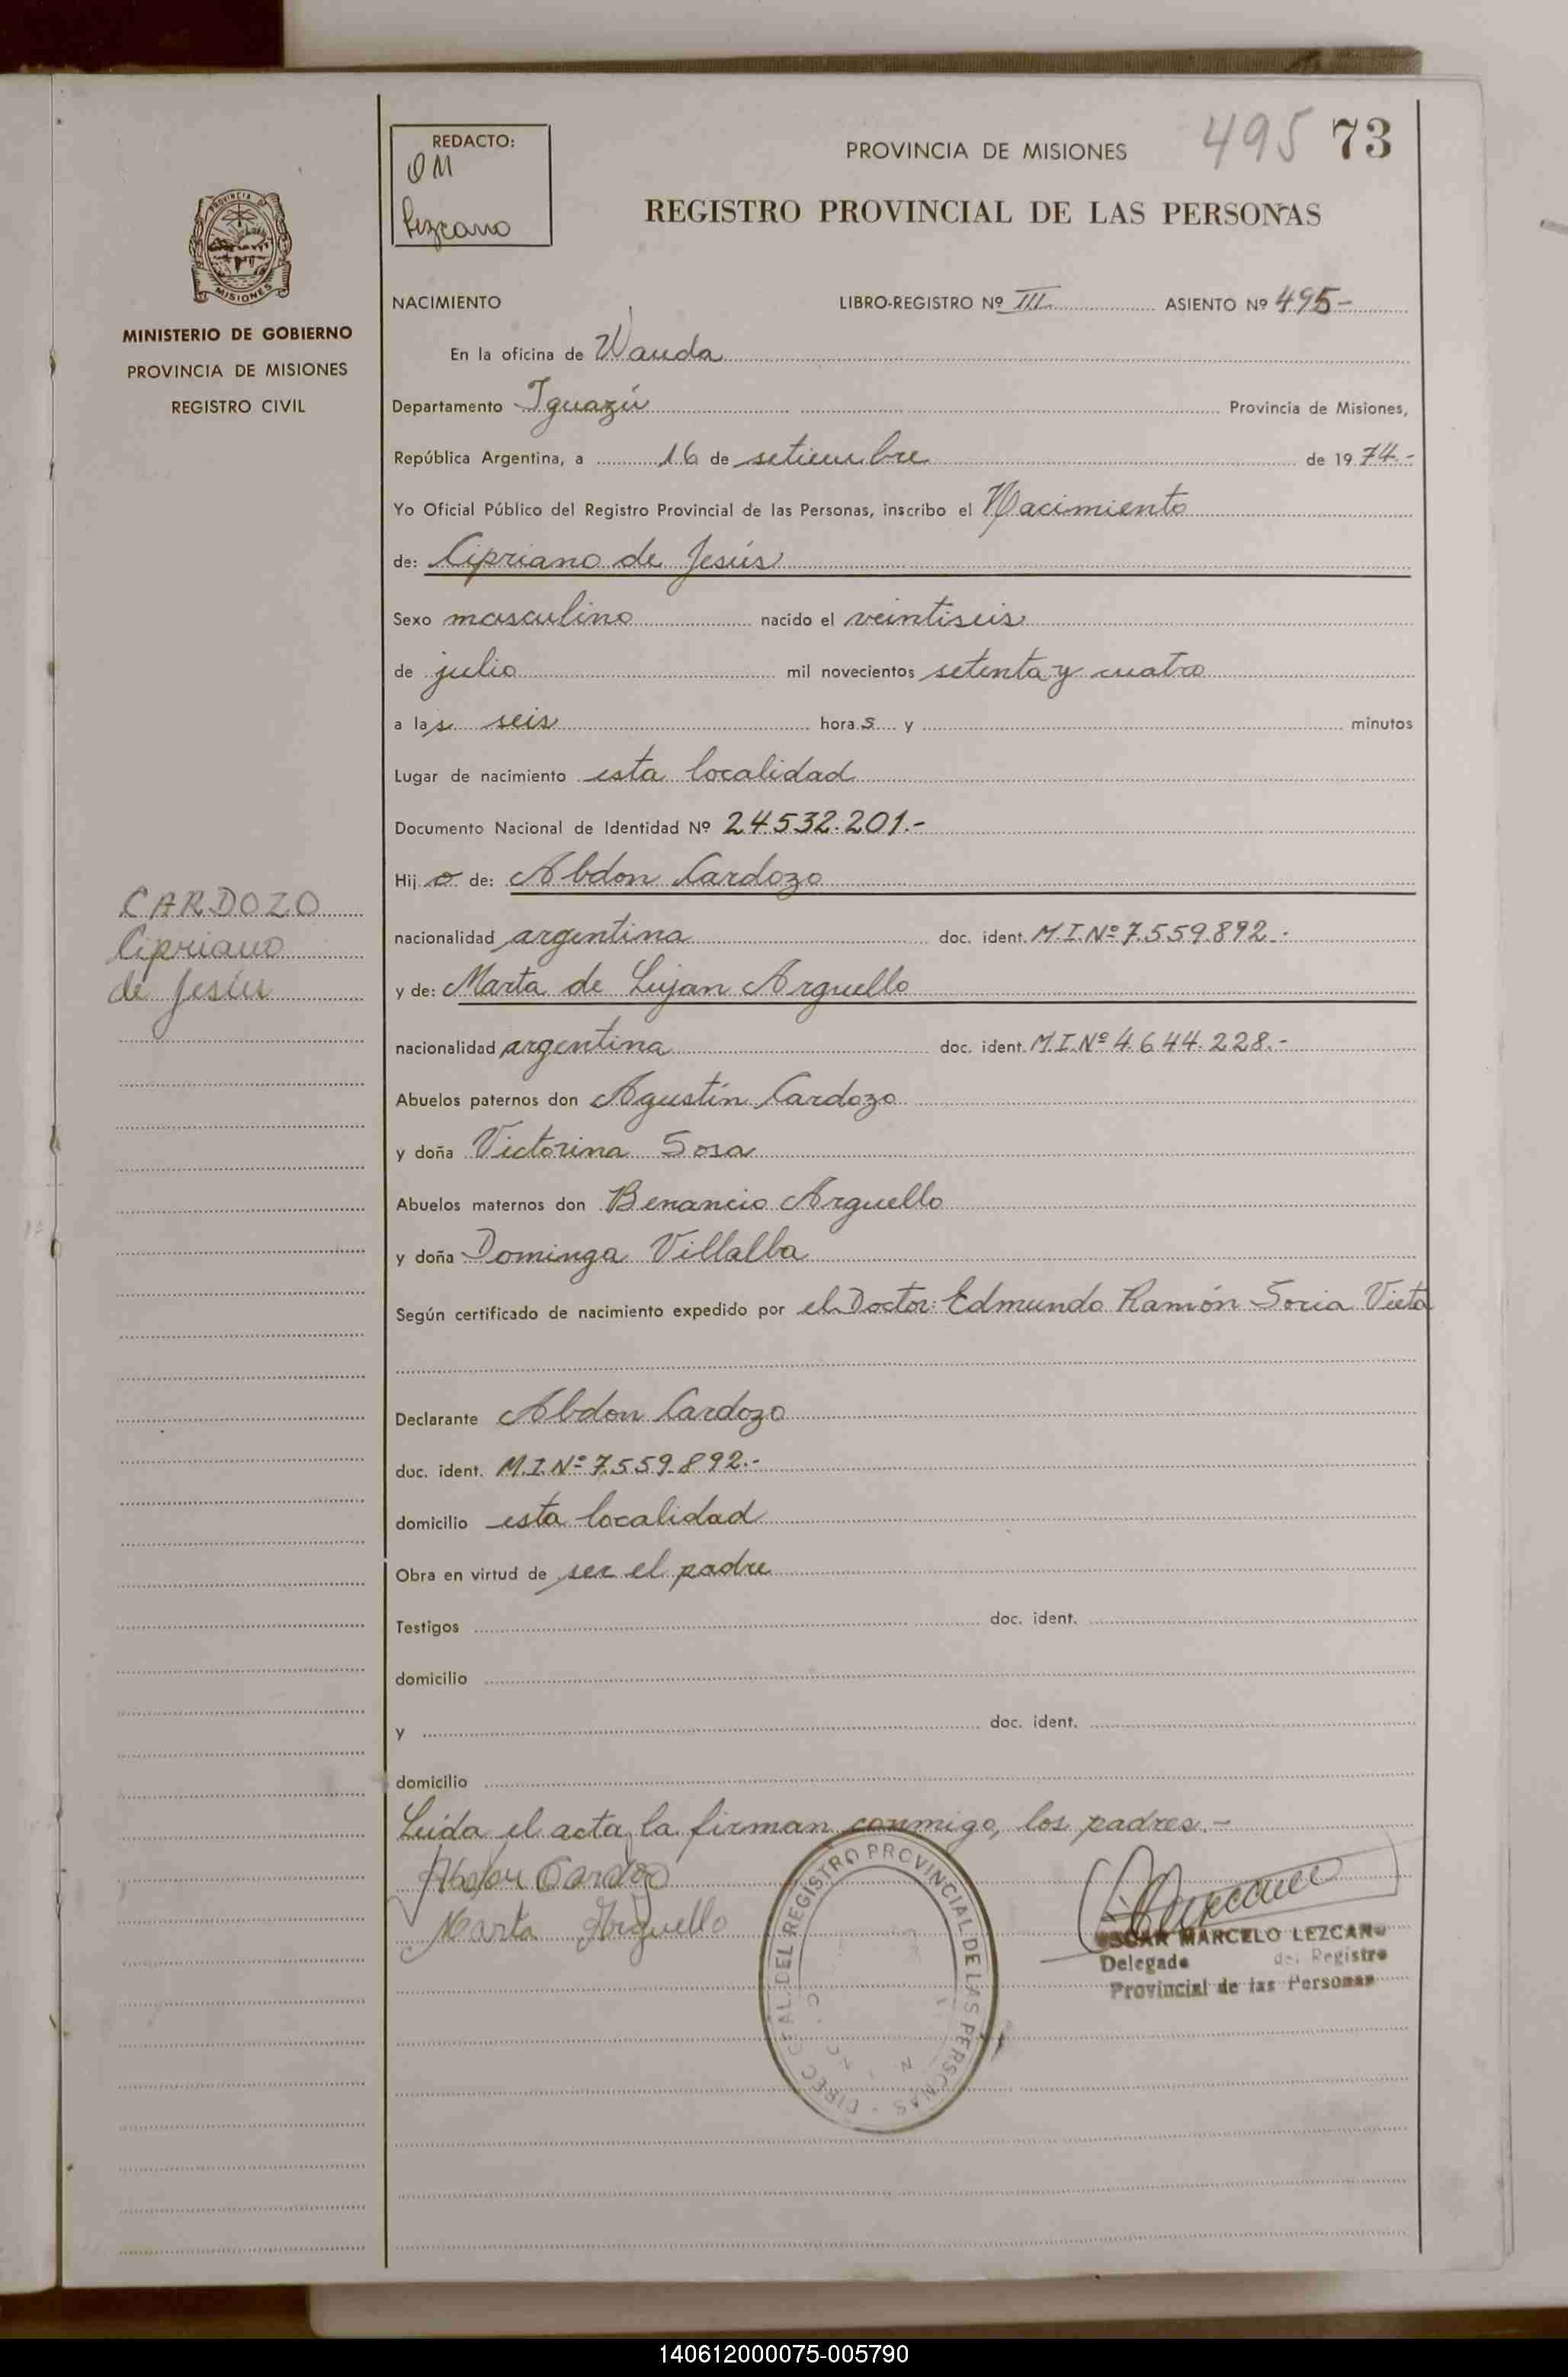 REDACTO:
OM
Lezcano
PROVINCIA DE MISIONES
495 73
REGISTRO PROVINCIAL DE LAS PERSONAS
PROVINCIA
MISIONES
MINISTERIO DE GOBIERNO
PROVINCIA DE MISIONES
REGISTRO CIVIL
NACIMIENTO LIBRO-REGISTRO Nº III ASIENTO Nº 495-
En la oficina de Wanda
Departamento Iguazú Provincia de Misiones,
República Argentina, a 16 de setiembre de 1974.-
Yo Oficial Público del Registro Provincial de las Personas, inscribo el Nacimiento
de: Cipriano de Jesús
Sexo masculino nacido el veintiseis
de julio mil novecientos setenta y cuatro
a las seis horas y minutos
Lugar de nacimiento esta localidad
Documento Nacional de Identidad Nº 24.532.201.-
Hijo de: Abdon Cardozo
CARDOZO
Cipriano
de Jesús
nacionalidad argentina doc. ident. M.I.Nº 7.559.892.-
y de: Marta de Lujan Arguello
nacionalidad argentina doc. ident. M.I.Nº 4.644.228.-
Abuelos paternos don Agustín Cardozo
y doña Victorina Sosa
Abuelos maternos don Benancio Arguello
y doña Dominga Villalba
Según certificado de nacimiento expedido por el Doctor: Edmundo Ramón Soria Vieta
Declarante Abdon Cardozo
doc. ident. M.I.Nº 7.559.892.-
domicilio esta localidad
Obra en virtud de ser el padre
Testigos doc. ident.
domicilio
y doc. ident.
domicilio
Leída el acta, la firman conmigo, los padres.-
Abdon Cardozo
Marta Arguello
DEL REGISTRO PROVINCIAL DE LAS PERSONAS
OSCAR MARCELO LEZCANO
Delegado del Registro
Provincial de las Personas
140612000075-005790